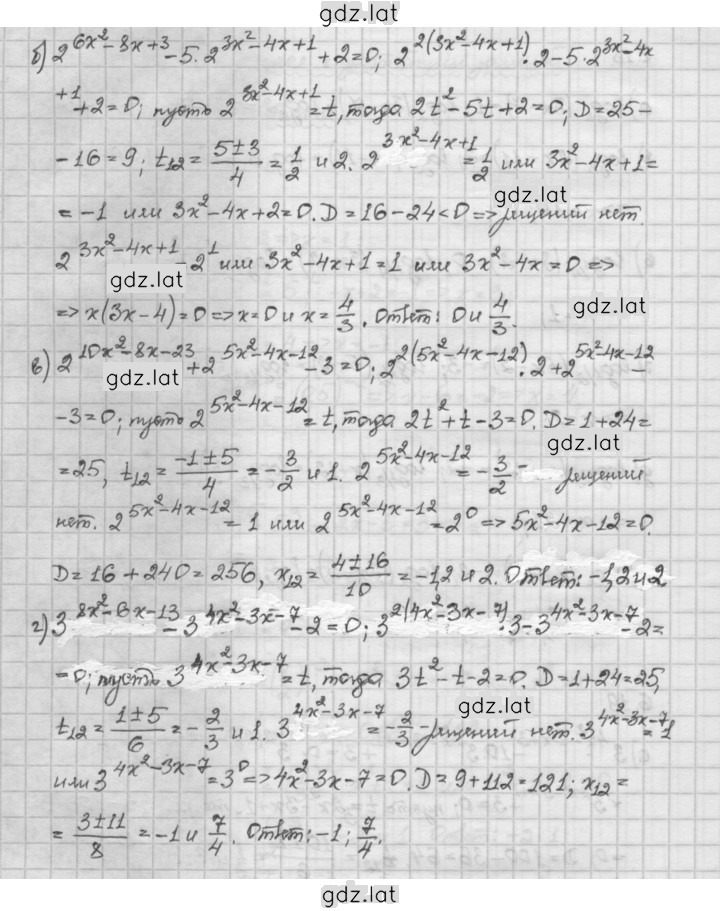 gdz.lat
б) 2^{6x²-8x+3} - 5·2^{3x²-4x+1} + 2 = 0; 2^{2(3x²-4x+1)}·2 - 5·2^{3x²-4x
+1} + 2 = 0; пусть 2^{3x²-4x+1} = t, тогда 2t² - 5t + 2 = 0; D = 25 -
- 16 = 9; t₁₂ = \frac{5±3}{4} = \frac{1}{2} и 2. 2^{3x²-4x+1} = \frac{1}{2} или 3x² - 4x + 1 =
gdz.lat
= -1 или 3x² - 4x + 2 = 0. D = 16 - 24 < 0 => решений нет.
2^{3x²-4x+1} - 2^1 или 3x² - 4x + 1 = 1 или 3x² - 4x = 0 =>
gdz.lat
=> x(3x - 4) = 0 => x = 0 и x = \frac{4}{3}. Ответ: 0 и \frac{4}{3}.
gdz.lat
в) 2^{10x²-8x-23} + 2^{5x²-4x-12} - 3 = 0; 2^{2(5x²-4x-12)}·2 + 2^{5x²-4x-12} -
gdz.lat
- 3 = 0; пусть 2^{5x²-4x-12} = t, тогда 2t² + t - 3 = 0. D = 1 + 24 =
gdz.lat
= 25, t₁₂ = \frac{-1±5}{4} = -\frac{3}{2} и 1. 2^{5x²-4x-12} = -\frac{3}{2} - решений
нет. 2^{5x²-4x-12} = 1 или 2^{5x²-4x-12} = 2^0 => 5x² - 4x - 12 = 0.
D = 16 + 240 = 256, x₁₂ = \frac{4±16}{10} = -1,2 и 2. Ответ: -1,2 и 2
г) 3^{8x²-6x-13} - 3^{4x²-3x-7} - 2 = 0; 3^{2(4x²-3x-7)}·3 - 3^{4x²-3x-7} - 2 =
= 0; пусть 3^{4x²-3x-7} = t, тогда 3t² - t - 2 = 0. D = 1 + 24 = 25,
gdz.lat
t₁₂ = \frac{1±5}{6} = -\frac{2}{3} и 1. 3^{4x²-3x-7} = -\frac{2}{3} - решений нет. 3^{4x²-3x-7} = 1
или 3^{4x²-3x-7} = 3^0 => 4x² - 3x - 7 = 0. D = 9 + 112 = 121; x₁₂ =
= \frac{3±11}{8} = -1 и \frac{7}{4}. Ответ: -1; \frac{7}{4}.
gdz.lat
gdz.lat